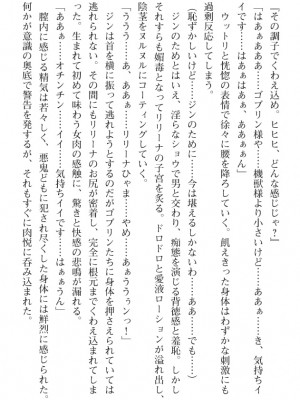 『その調子でくわえ込め。ヒヒヒ、どんな感じじゃ？』
「はぁぁぁぁ……ゴブリン様や……機獣様より小さいけど……あぁぁ……き、気持ちイイです……はぁぁはぁぁ、あぁぁン」
　ウットリと恍惚の表情で徐々に腰を降ろしていく。飢えきった身体はわずかな刺激にも過剰反応してしまう。
（恥ずかしいけど……ジンのために……今は堪えるしかないわ……あぁぁ……でも……）
　ジンのためとはいえ、淫らなショウで男と交わり、痴態を演じる背徳感と羞恥。しかしそれすらも媚毒となってリリーナの子宮を炙る。ドロドロと愛液ローションが溢れ出し、陰茎をヌルヌルにコーティングしていく。
「ううう……あ……ぁぁ……リリーナひゃま……やめ……あぁぅぅンっ！」
　ジンは首を横に振って逃れようとするのだがゴブリンたちに身体を押さえられていては逃れられない。その間にもリリーナのお尻が密着し、完全に根元までくわえ込まれてしまった。生まれて初めて味わう女肉の感触に、驚きと快感の悲鳴が漏れる。
「あぁぁ……オチンチン……イイ……気持ちイイです……はぁぁぅん」
　膣内に感じる精気は若々しく、悪鬼どもに犯され尽くした身体には鮮烈に感じられた。何かが意識の奥底で警告を発するが、それもすぐに肉悦に呑み込まれた。